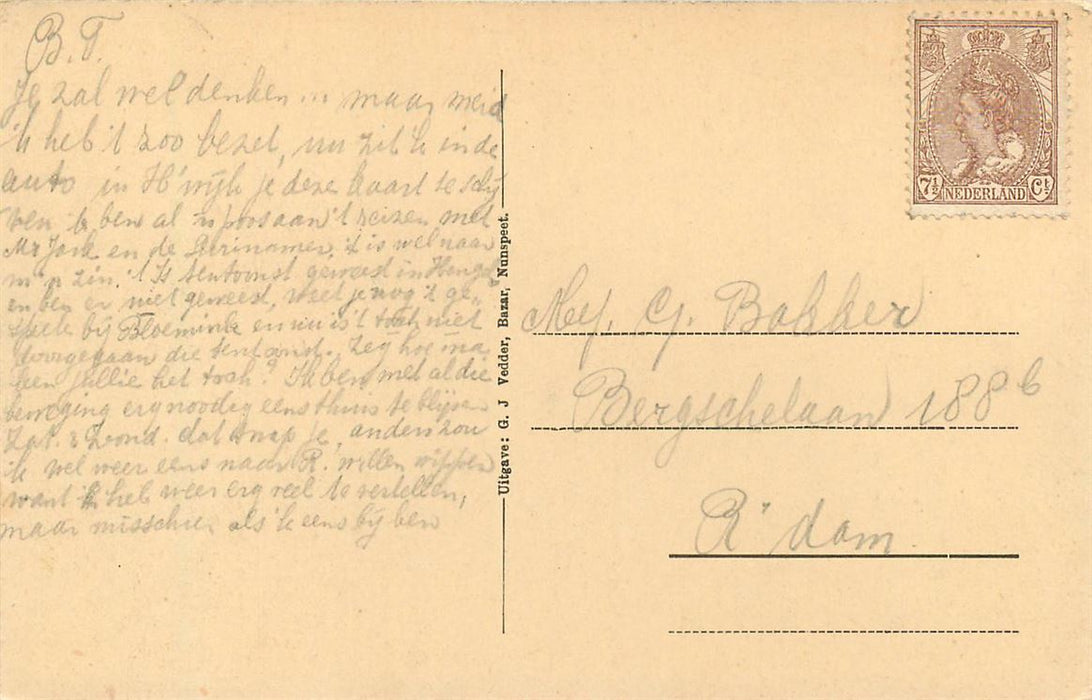 B.T.
Je zal wel denken ... maar meid
'k heb 't zoo bezet, nu zit 'k in de
auto in H'wijk je deze kaart te schij
ven 'k ben al 'n poos aan 't reizen met
Mr Jork en de Surinamer, 't is wel naar
m'n zin. 't Is tentoonst geweest in Hengelo
en ben er niet geweest, weet je nog 't ge-
bij Bloemink en nu is 't toch niet
doorgegaan die tent and. Zeg hoe ma
ken jullie het toch? Ik ben met al die
beweging erg noodig eens thuis te blijven
Zat. & Zond. dat snap je, anders zou
ik wel weer eens naar R. willen wippen
want 'k heb weer erg veel te vertellen,
maar misschien als 'k eens bij ben
Uitgave: G. J Vedder, Bazar, Nunspeet.
7½ NEDERLAND Ct
Mej. G. Bakker
Bergschelaan 188b
R'dam